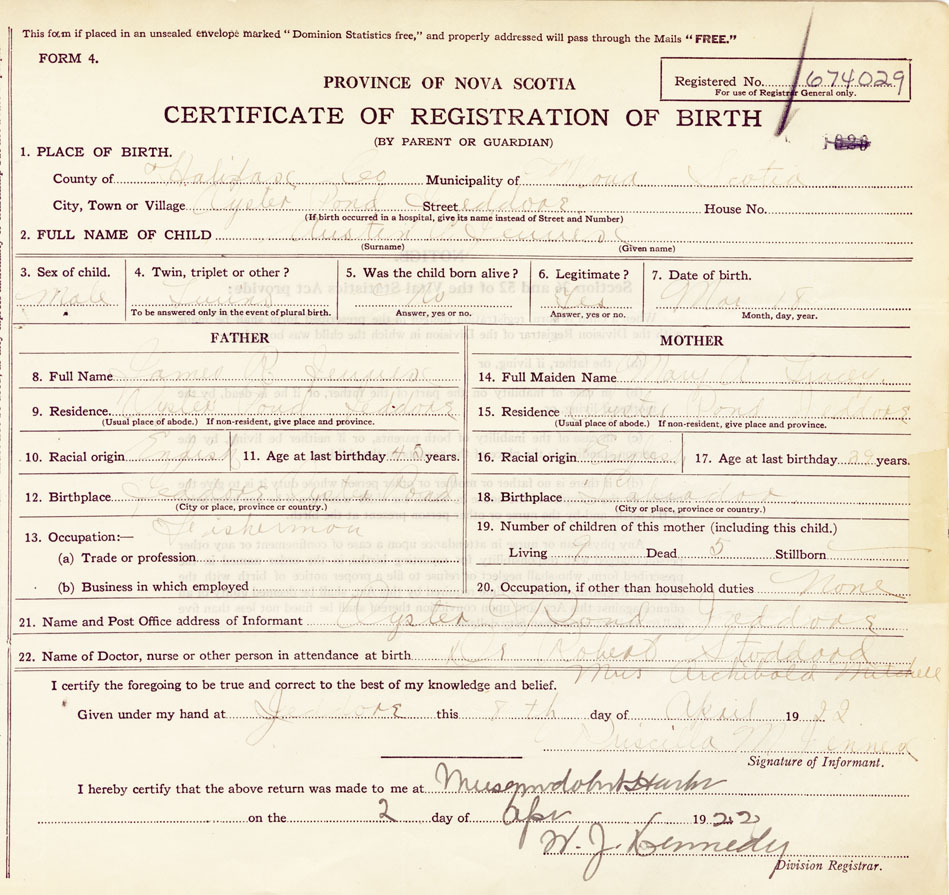 This form if placed in an unsealed envelope marked "Dominion Statistics free," and properly addressed will pass through the Mails "FREE."
FORM 4.
PROVINCE OF NOVA SCOTIA
Registered No. 674029
For use of Registrar General only.
CERTIFICATE OF REGISTRATION OF BIRTH
(BY PARENT OR GUARDIAN)
1. PLACE OF BIRTH.
County of Halifax Co Municipality of Nova Scotia
City, Town or Village Oyster Pond Street Jeddore House No.
(If birth occurred in a hospital, give its name instead of Street and Number)
2. FULL NAME OF CHILD Austin
(Surname) (Given name)
3. Sex of child. 4. Twin, triplet or other? 5. Was the child born alive? 6. Legitimate? 7. Date of birth.
Male No Yes Mar 18
To be answered only in the event of plural birth. Answer, yes or no. Answer, yes or no. Month, day, year.
FATHER MOTHER
8. Full Name James 14. Full Maiden Name Mary A
9. Residence Oyster Pond Jeddore 15. Residence Oyster Pond Jeddore
(Usual place of abode.) If non-resident, give place and province. (Usual place of abode.) If non-resident, give place and province.
10. Racial origin 11. Age at last birthday 45 years. 16. Racial origin 17. Age at last birthday 29 years.
12. Birthplace Jeddore Oyster Pond 18. Birthplace Labrador
(City or place, province or country.) (City or place, province or country.)
13. Occupation:— Fisherman 19. Number of children of this mother (including this child.)
(a) Trade or profession Living 7 Dead 5 Stillborn
(b) Business in which employed 20. Occupation, if other than household duties None
21. Name and Post Office address of Informant Oyster Pond Jeddore
22. Name of Doctor, nurse or other person in attendance at birth Dr Robert Stoddard
Mrs Archibald Mitchell
I certify the foregoing to be true and correct to the best of my knowledge and belief.
Given under my hand at Jeddore this 8th day of April 1922
Priscilla M Jennex
Signature of Informant.
I hereby certify that the above return was made to me at
on the 2 day of Apr 1922
W. J. Kennedy
Division Registrar.